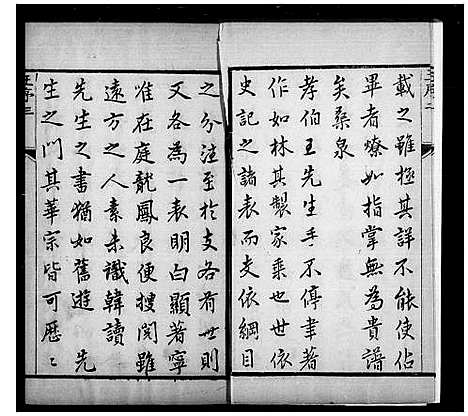 載之雖極其詳不能使佔
畢者燎如指掌無為貴譜
矣桑泉
孝伯王先生手不停聿著
作如林其製家乘也世依
史記之諸表而支依綱目
之分注至於支各有世則
又各為一表明白顯著寧
唯在庭龍鳳良便搜閱雖
遠方之人素未識韓讀
先生之書猶如舊遊 先
生之門其華宗皆可歷〻